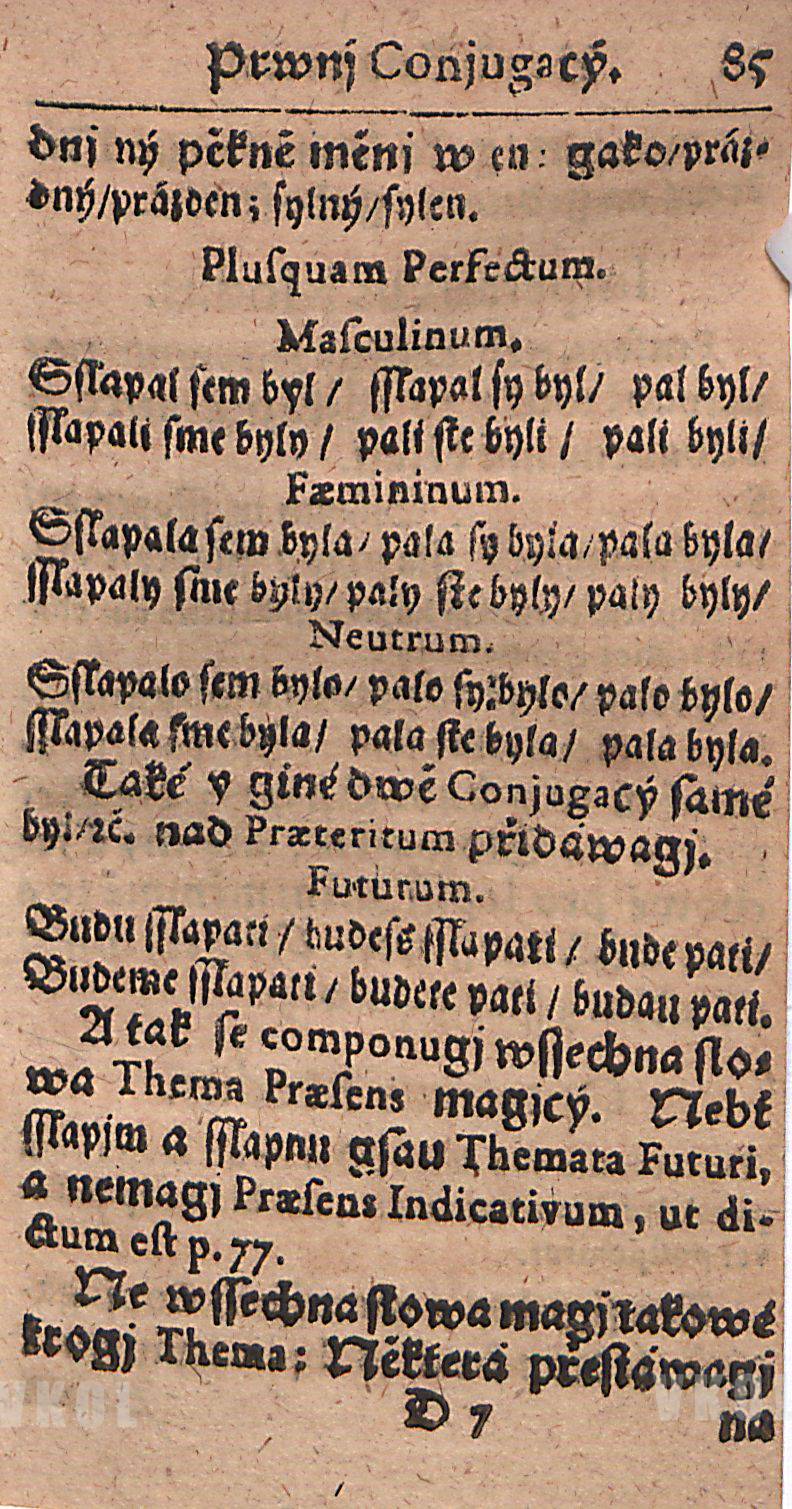 Prwnj Conjugacý. 85
dnj ný pěkně měnj w en: gako/práz-
dný/prázden; sylný/sylen.
Pluſquam Perfectum.
Maſculinum.
Sſſlapal ſem byl / ſſlapal ſy byl/ pal byl/
ſſlapali ſme byly / pali ſte byli / pali byli/
Fæmininum.
Sſſlapala ſem byla/ pala ſy byla/pala byla/
ſſlapaly ſme byly/ paly ſte byly/ paly byly/
Neutrum.
Sſſlapalo ſem bylo/ palo ſy bylo/ palo bylo/
ſſlapala ſme byla/ pala ſte byla/ pala byla.
Také y giné dwě Conjugacý ſamé
byl/ꝛč. nad Præteritum přidáwagj.
Futurum.
Budu ſſlapati / budeſs ſſlapati / bude pati/
Budeme ſſlapati / budete pati / budau pati.
A tak ſe componugj wſſechna ſlo-
wa Thema Præſens magjcý. Nebť
ſſlapjm a ſſlapnu gſau Themata Futuri,
a nemagj Præſens Indicativum, ut di-
ctum eſt p. 77.
Ne wſſechna ſlowa magj takowé
krogj Thema: Některá přeſtáwagj
D 7 na
VKOL VKOL